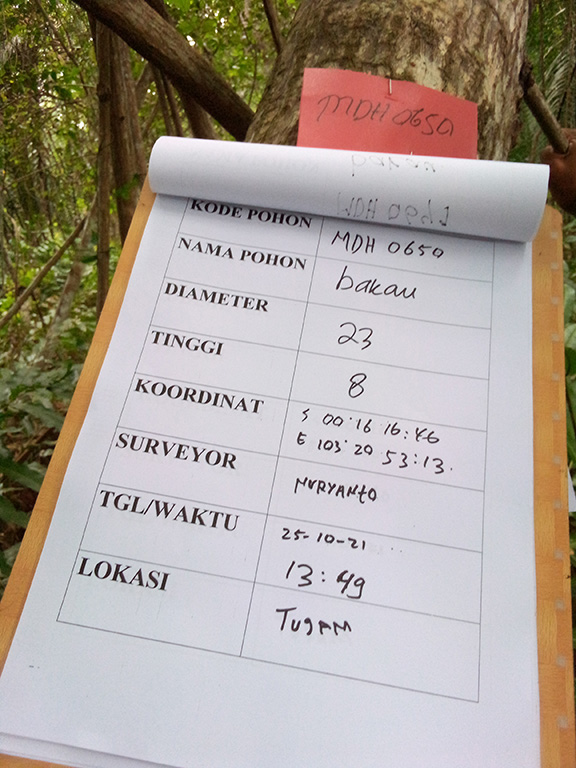 MDH 0650
KODE POHON MDH 0650
NAMA POHON bakau
DIAMETER 23
TINGGI 8
KOORDINAT S 00°16 16:46
E 103°20 53:13.
SURVEYOR NURYANTO
TGL/WAKTU 25-10-21
13:49
LOKASI TUGAM